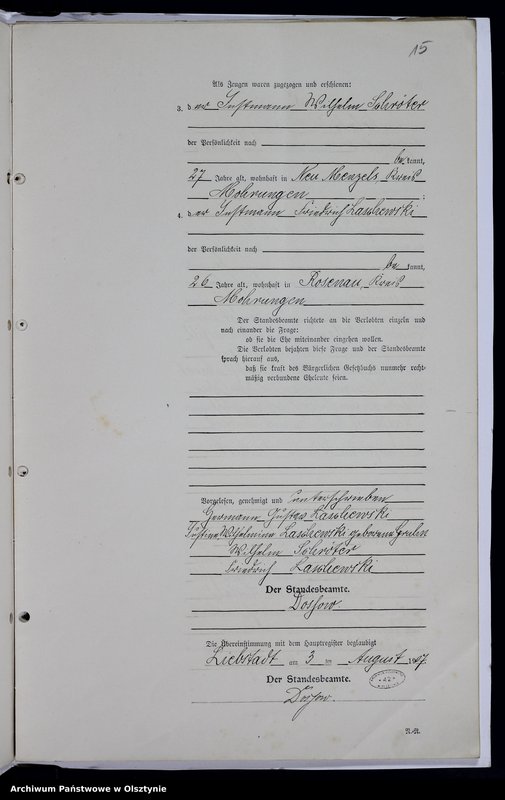 15
Als Zeugen waren zugezogen und erschienen:
3. der Instmann Wilhelm Schröter
der Persönlichkeit nach
be kannt,
27 Jahre alt, wohnhaft in Neu Menzels Kreis
Mohrungen
4. der Instmann Friedrich Laschewski
der Persönlichkeit nach
be kannt,
26 Jahre alt, wohnhaft in Rosenau, Kreis
Mohrungen
Der Standesbeamte richtete an die Verlobten einzeln und
nach einander die Frage:
ob sie die Ehe miteinander eingehen wollen.
Die Verlobten bejahten diese Frage und der Standesbeamte
sprach hierauf aus,
daß sie kraft des Bürgerlichen Gesetzbuchs nunmehr recht-
mäßig verbundene Eheleute seien.
Vorgelesen, genehmigt und unterschrieben
Hermann Gustav Laschewski
Justine Wilhelmine Laschewski geborene
Wilhelm Schröter
Friedrich Laschewski
Der Standesbeamte.
Die Übereinstimmung mit dem Hauptregister beglaubigt
Liebstadt am 3 ten August
Der Standesbeamte.
Archiwum Państwowe w Olsztynie